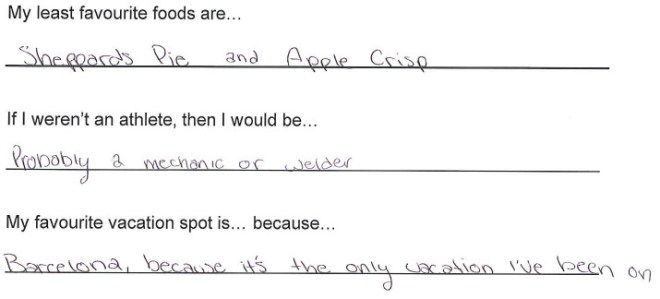 My least favourite foods are...
Sheppards Pie and Apple Crisp
If I weren't an athlete, then I would be...
Probably a mechanic or welder
My favourite vacation spot is... because...
Barcelona, because it's the only vacation I've been on